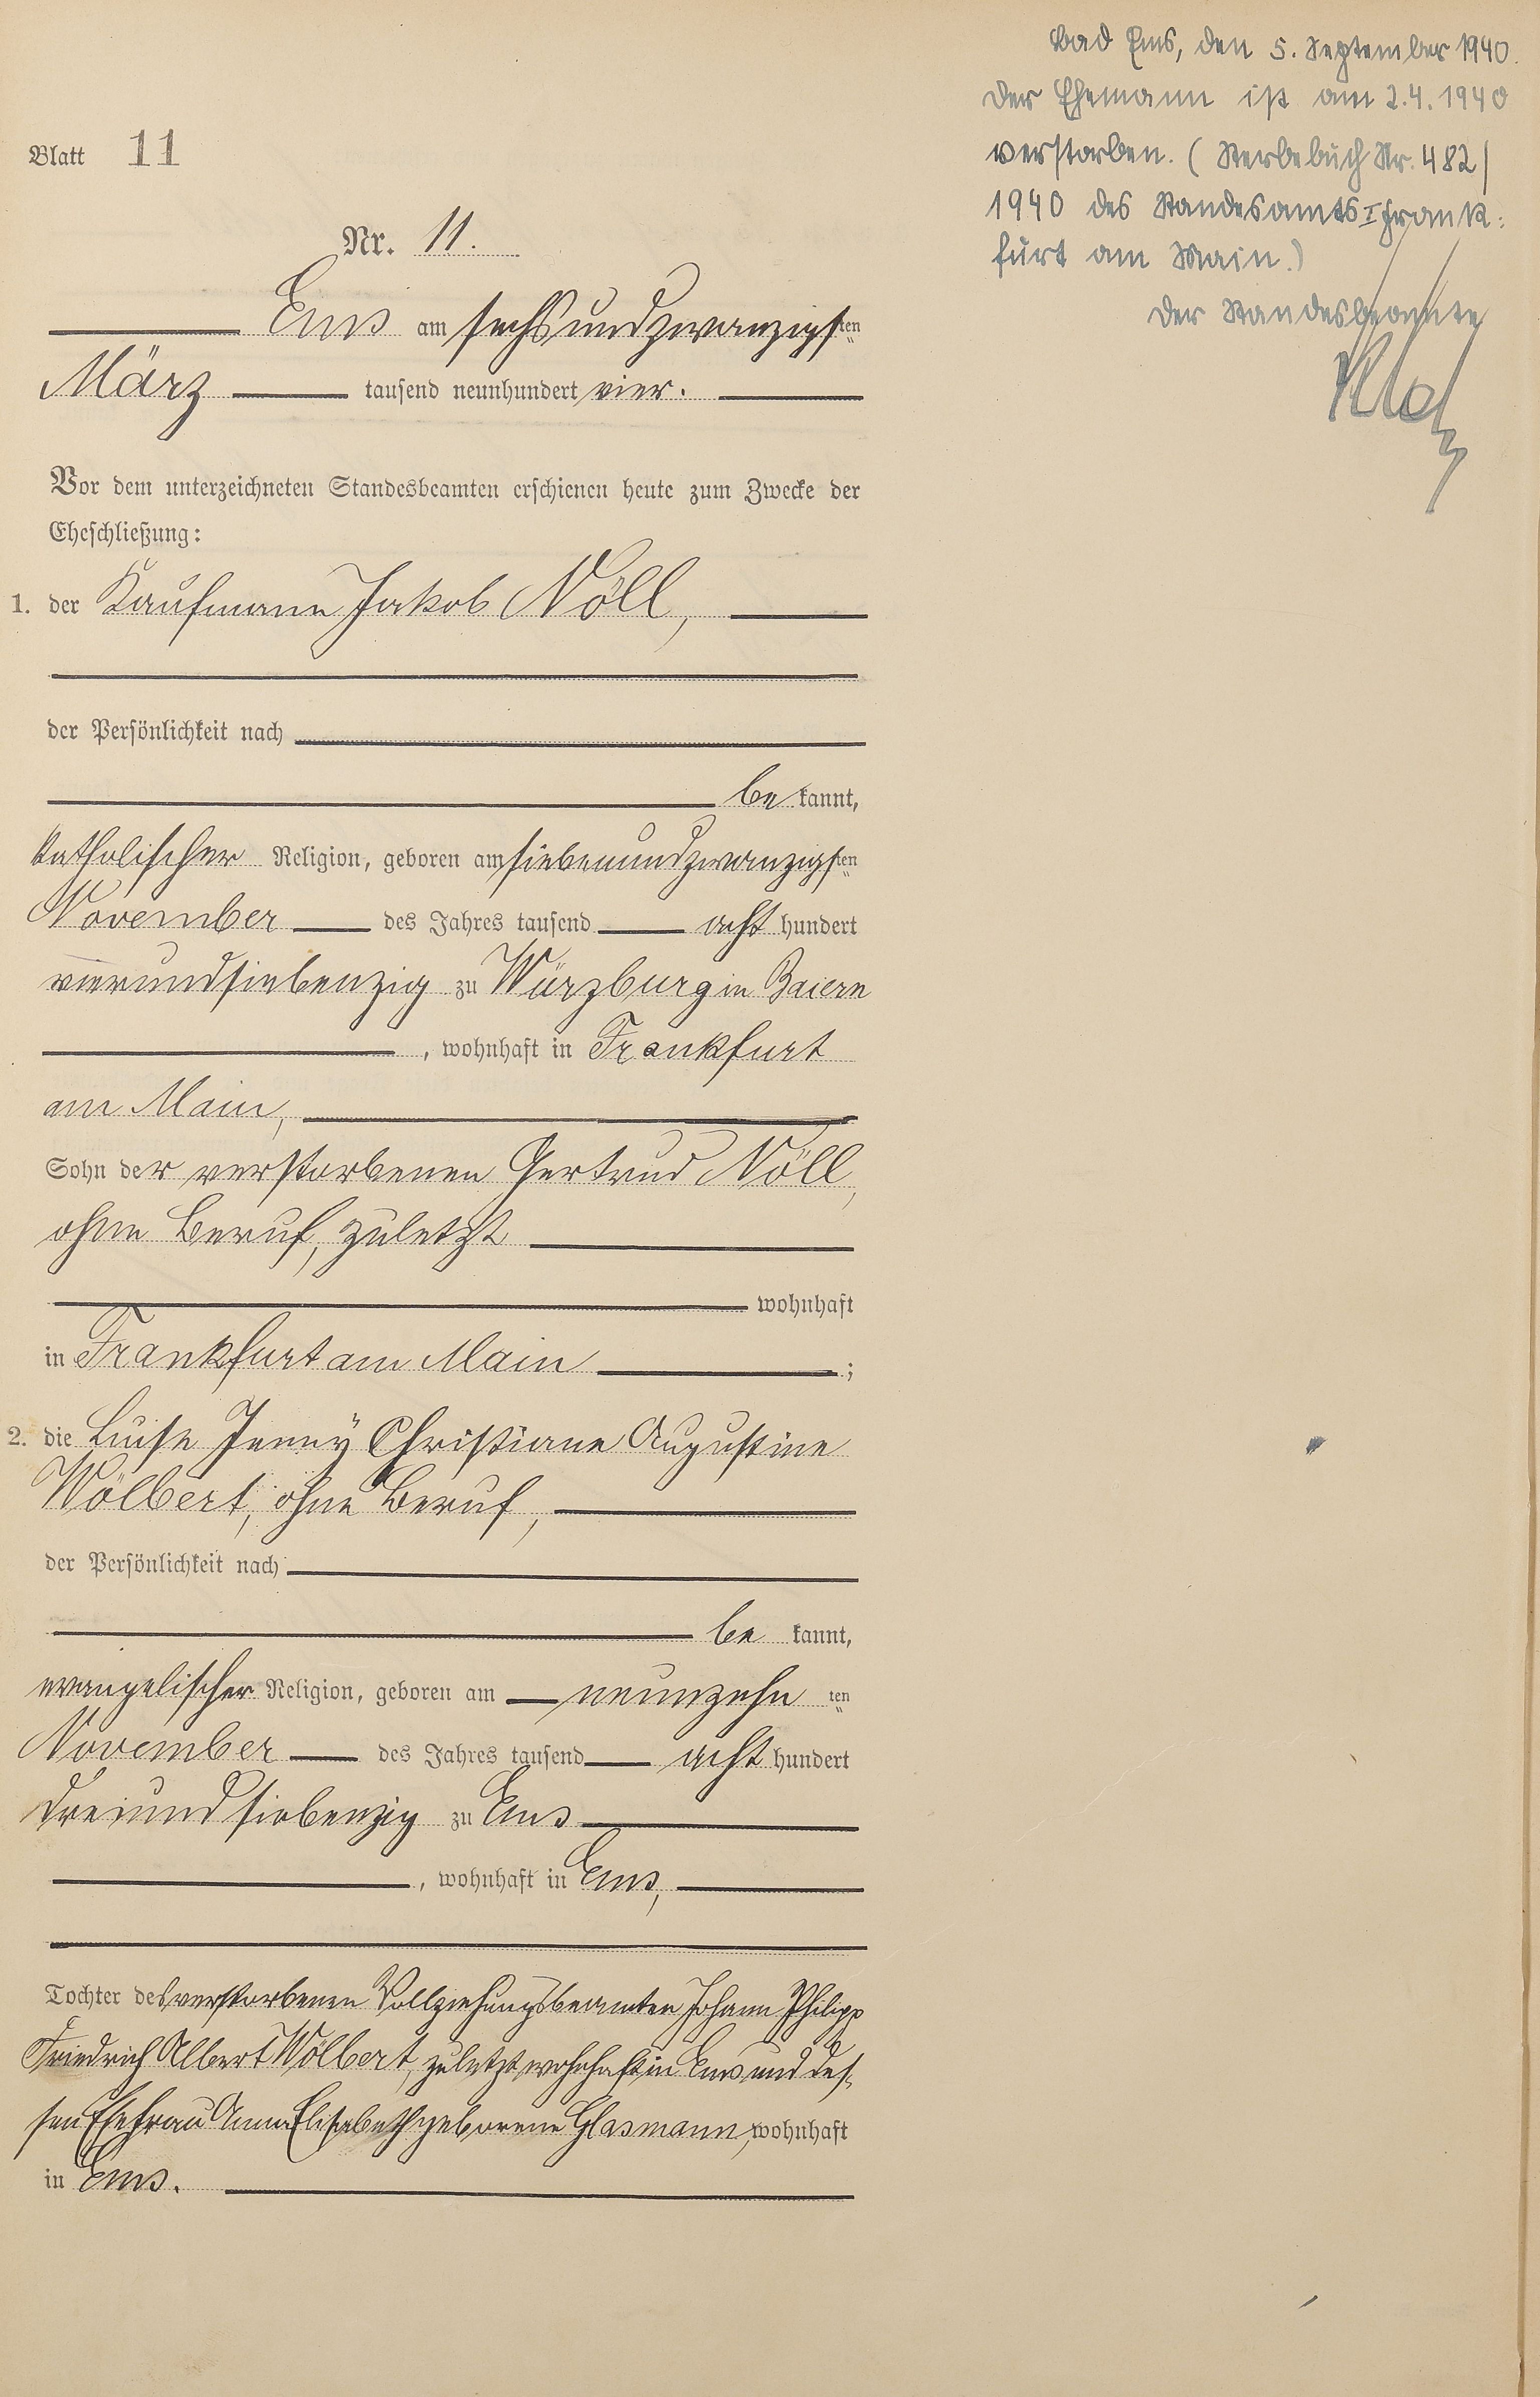 Blatt 11
Nr. 11.
Ems am sechsundzwanzigsten
März tausend neunhundert vier.
Vor dem unterzeichneten Standesbeamten erschienen heute zum Zwecke der
Eheschließung:
1. der Kaufmann Jakob Nöll,
der Persönlichkeit nach
be kannt,
katholischer Religion, geboren am siebenundzwanzigsten
November des Jahres tausend acht hundert
vierundsiebenzig zu Würzburg in Baiern
, wohnhaft in Frankfurt
am Main,
Sohn der verstorbenen Gertrud Nöll,
ohne Beruf, zuletzt
wohnhaft
in Frankfurt am Main ;
2. die Luise Jenny Christiane Augustine
Wölbert, ohne Beruf,
der Persönlichkeit nach
be kannt,
evangelischer Religion, geboren am neunzehn ten
November des Jahres tausend acht hundert
dreiundsiebenzig zu Ems
, wohnhaft in Ems,
Tochter des verstorbenen Vollziehungsbeamten Johann Philipp
Friedrich Albert Wölbert, zuletzt wohnhaft in Ems und des-
sen Ehefrau Anna Elisabeth geborene Glasmann, wohnhaft
in Ems.
Bad Ems, den 5. September 1940.
Der Ehemann ist am 2.4.1940
verstorben. (Sterbebuch Nr. 482/
1940 des Standesamts I Frank-
furt am Main.)
Der Standesbeamte